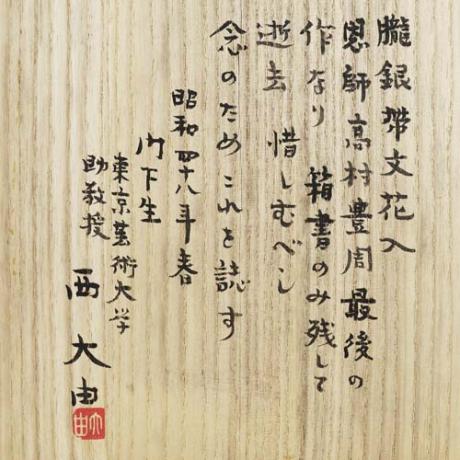 朧銀帯文花入
恩師高村豊周最後の
作なり 箱書のみ残して
逝去 惜しむべし
念のためこれを誌す
昭和四十八年春
門下生
東京芸術大学
助教授
西大由
大由